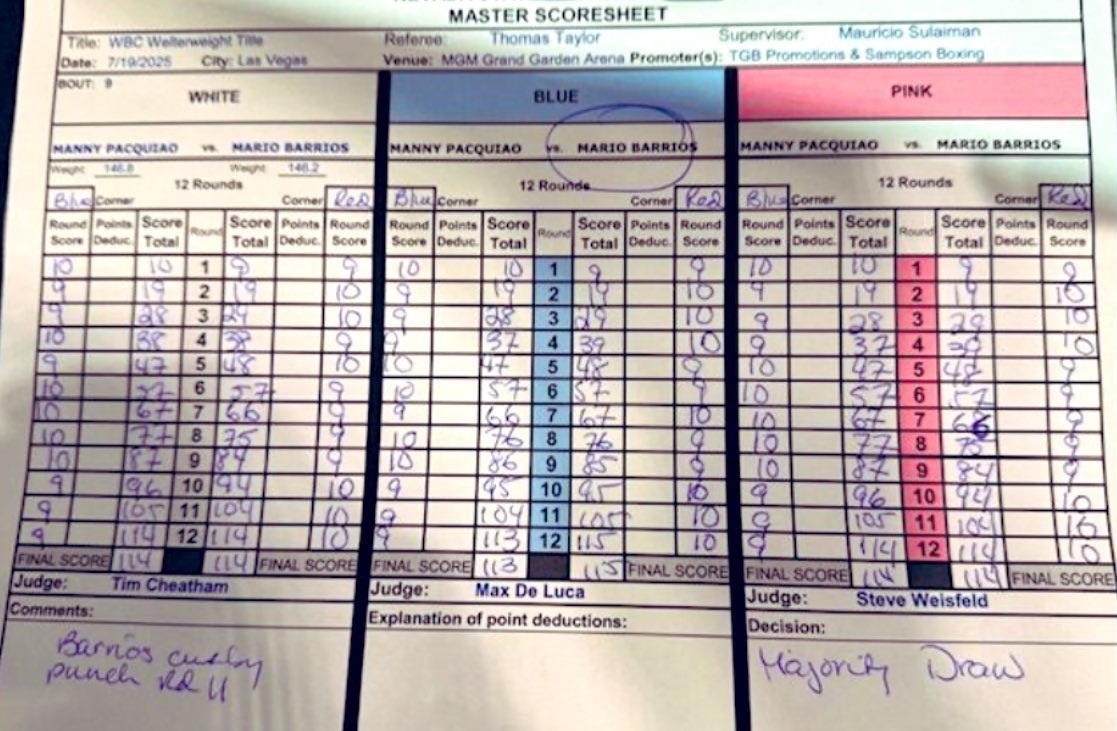 MASTER SCORESHEET
Title: WBC Welterweight Title Referee: Thomas Taylor Supervisor: Mauricio Sulaiman
Date: 7/19/2025 City: Las Vegas Venue: MGM Grand Garden Arena Promoter(s): TGB Promotions & Sampson Boxing
BOUT: 9
WHITE BLUE PINK
MANNY PACQUIAO vs. MARIO BARRIOS MANNY PACQUIAO vs. MARIO BARRIOS MANNY PACQUIAO vs. MARIO BARRIOS
Weight: 146.8 Weight: 146.2
12 Rounds 12 Rounds 12 Rounds
Blue Corner Corner Red Blue Corner Corner Red Blue Corner Corner Red
Round Points Score Round Score Points Round Round Points Score Round Score Points Round Round Points Score Round Score Points Round
Score Deduc. Total Total Deduc. Score Score Deduc. Total Total Deduc. Score Score Deduc. Total Total Deduc. Score
10 10 1 9 9 10 10 1 9 9 10 10 1 9 9
9 19 2 19 10 9 19 2 19 10 9 19 2 19 10
9 28 3 29 10 9 28 3 29 10 9 28 3 29 10
10 38 4 38 9 9 37 4 39 10 9 37 4 39 10
9 47 5 48 10 10 47 5 48 9 10 47 5 48 9
10 57 6 57 9 10 57 6 57 9 10 57 6 57 9
10 67 7 66 9 9 66 7 67 10 10 67 7 66 9
10 77 8 75 9 10 76 8 76 9 10 77 8 75 9
10 87 9 84 9 10 86 9 85 9 10 87 9 84 9
9 96 10 94 10 9 95 10 95 10 9 96 10 94 10
9 105 11 104 10 9 104 11 105 10 9 105 11 104 10
9 114 12 114 10 9 113 12 115 10 9 114 12 114 10
FINAL SCORE 114 114 FINAL SCORE FINAL SCORE 113 115 FINAL SCORE FINAL SCORE 114 114 FINAL SCORE
Judge: Tim Cheatham Judge: Max De Luca Judge: Steve Weisfeld
Comments: Explanation of point deductions: Decision:
Barrios
punch Rd 11
Majority Draw